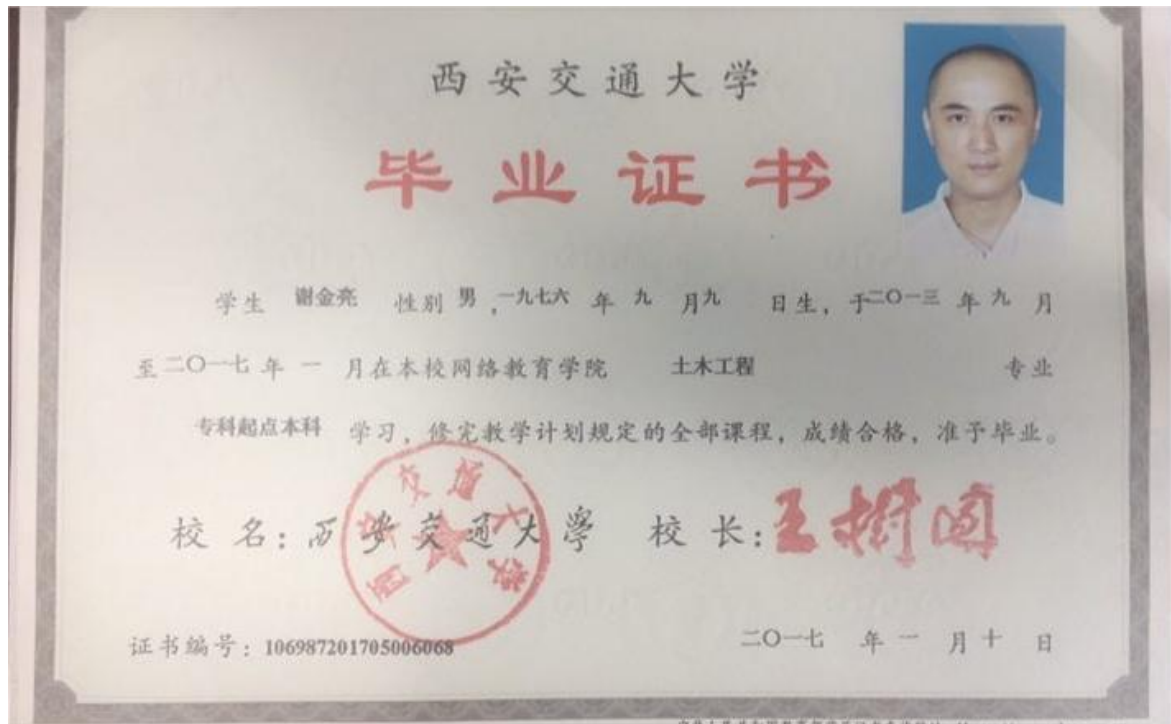 西安交通大学
毕业证书
学生 谢金亮 性别 男,一九七六 年 九 月九 日生,于二〇一三 年 九 月
至二〇一七 年 一 月在本校网络教育学院 土木工程 专业
专科起点本科 学习,修完教学计划规定的全部课程,成绩合格,准予毕业。
校 名:西安交通大學 校 长:王树国
西安交通大学
证书编号:106987201705006068 二〇一七 年 一 月 十 日